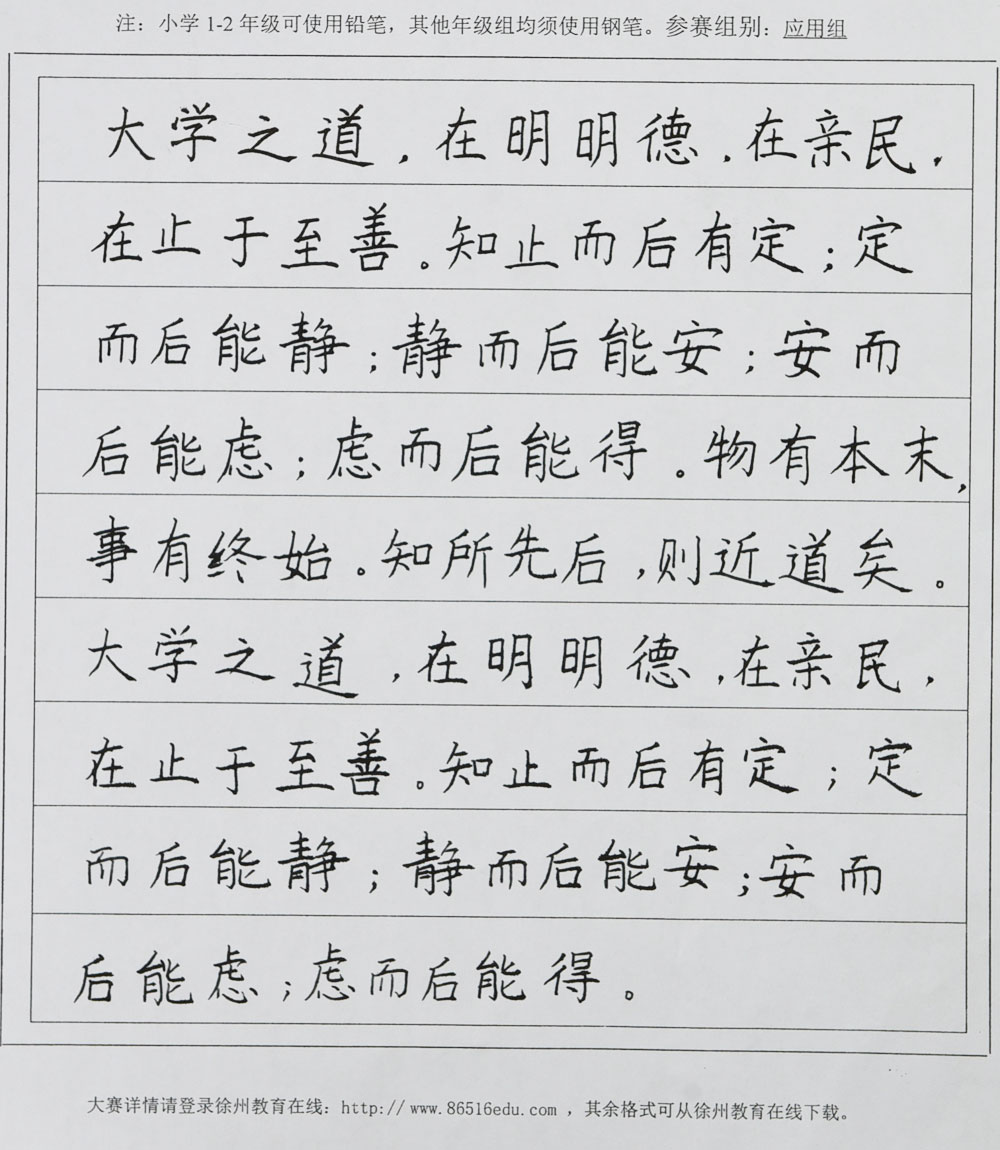 注：小学 1-2 年级可使用铅笔，其他年级组均须使用钢笔。参赛组别：应用组
大学之道，在明明德，在亲民，
在止于至善。知止而后有定；定
而后能静；静而后能安；安而
后能虑；虑而后能得。物有本末，
事有终始。知所先后，则近道矣。
大学之道，在明明德，在亲民，
在止于至善。知止而后有定；定
而后能静；静而后能安；安而
后能虑；虑而后能得。
大赛详情请登录徐州教育在线：http://www.86516edu.com ，其余格式可从徐州教育在线下载。